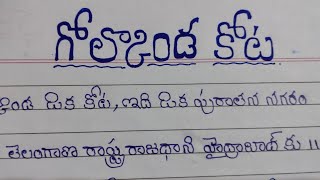 గోలకొండ కోట
కొండ ఒక కోట, ఇది ఒక పురాతన నగరం
తెలంగాణ రాష్ట్ర రాజధాని హైద్రాబాద్ కు 11